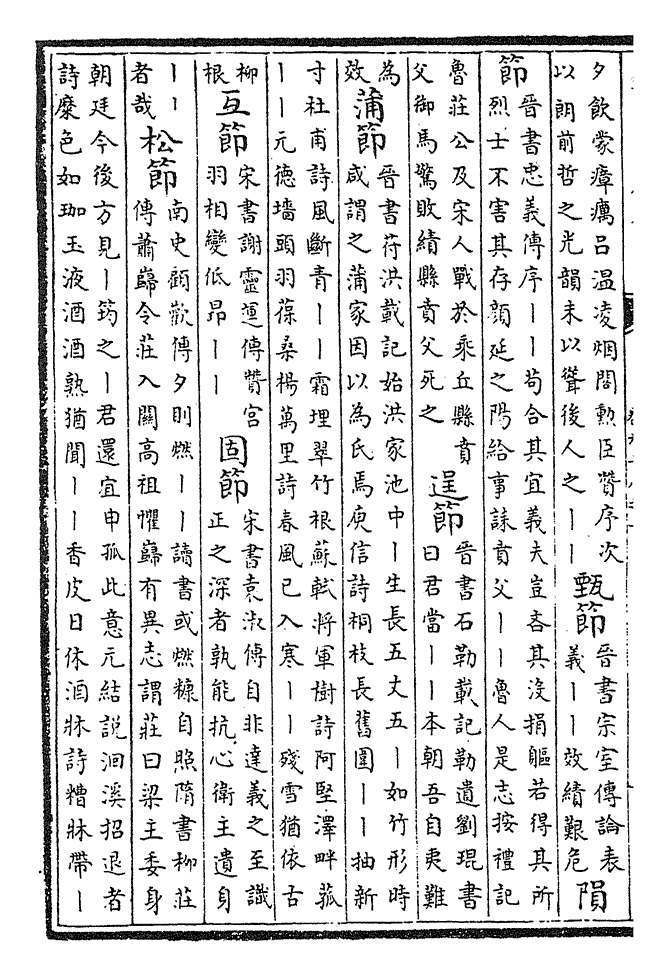 夕飲蒙瘴癘吕温凌烟閣勲臣贊序次
以朗前哲之光韻末以聳後人之丨丨
甄節
晉書宗室傳論表
義丨丨效績艱危
隕
節
晉書忠義傳序丨丨苟合其宜義夫豈吝其沒捐軀若得其所
烈士不害其存顔延之陽給事誄賁父丨丨魯人是志按禮記
魯莊公及宋人戰於乘丘縣賁
父御馬驚敗績縣賁父死之
逞節
晉書石勒載記勒遺劉琨書
曰君當丨丨本朝吾自夷難
為
效
蒲節
晉書苻洪載記始洪家池中丨生長五丈五丨如竹形時
咸謂之蒲家因以為氏焉庾信詩桐枝長舊圍丨丨抽新
寸杜甫詩風斷青丨丨霜埋翠竹根蘇軾將軍樹詩阿堅澤畔菰
丨丨元德墻頭羽葆桑楊萬里詩春風已入寒丨丨殘雪猶依古
柳
根
互節
宋書謝靈運傳贊宫
羽相變低昂丨丨
固節
宋書袁淑傳自非達義之至識
正之深者孰能抗心衛主遺身
丨丨
者哉
松節
南史顧歡傳夕則燃丨丨讀書或燃糠自照隋書柳莊
傳蕭巋令莊入關高祖懼巋有異志謂莊曰梁主委身
朝廷今後方見丨筠之丨君還宜申孤此意元結説洄溪招退者
詩糜色如珈玉液酒酒熟猶聞丨丨香皮日休酒牀詩糟牀帶丨